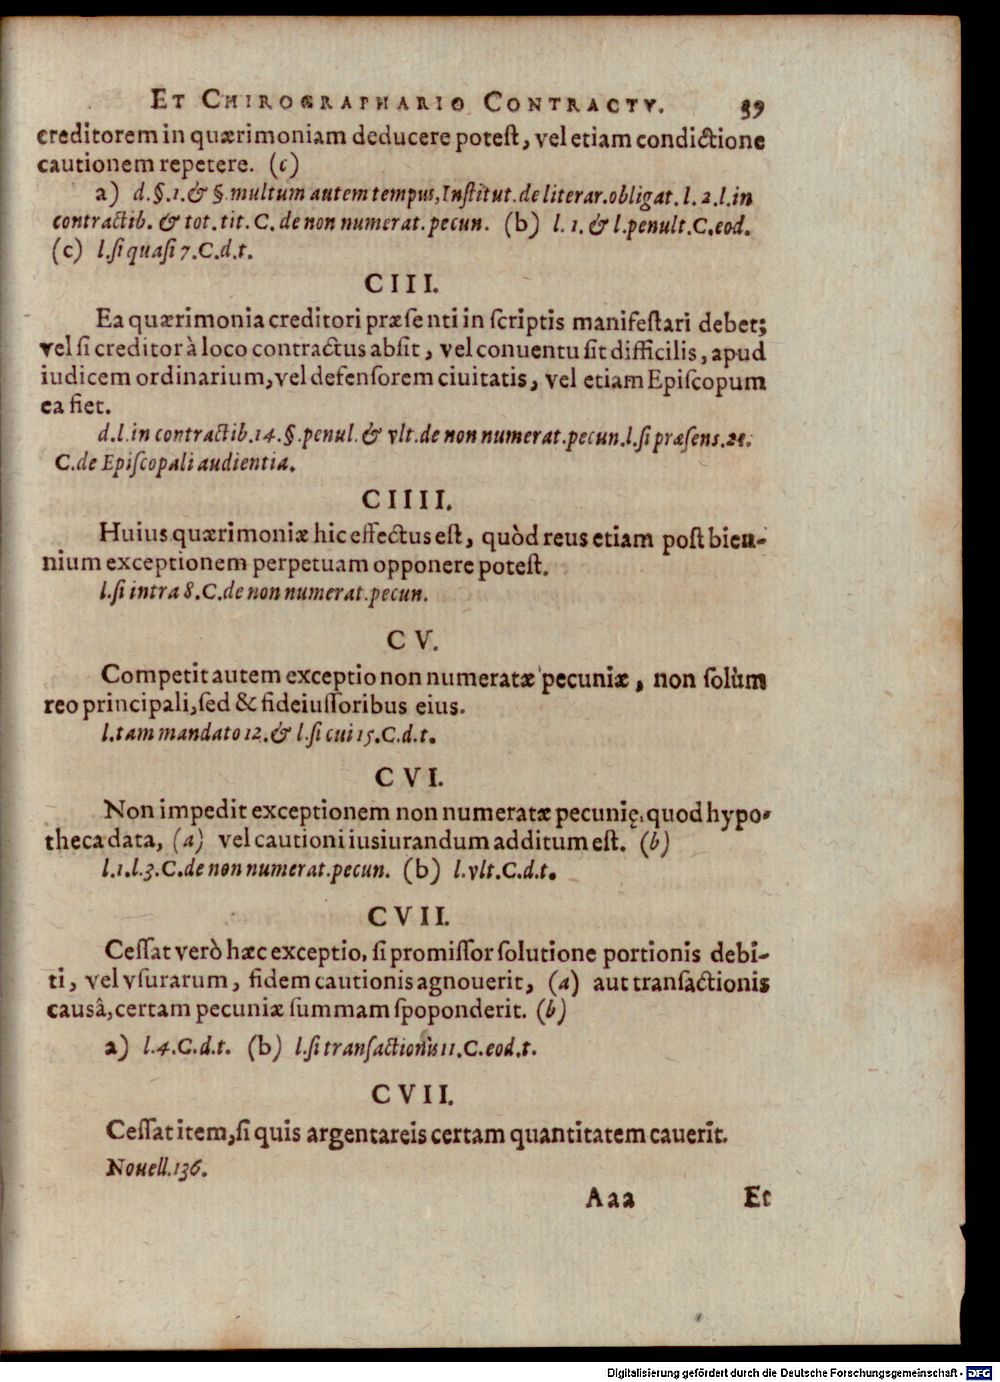 ET CHIROGRAPHARIO CONTRACTV. 59
creditorem in quærimoniam deducere poteſt, vel etiam condictione
cautionem repetere. (c)
a) d.§.1.& §.multum autem tempus,Inſtitut.de literar.obligat.l.2.l.in
contractib.& tot.tit.C.de non numerat.pecun. (b) l.1.& l.penult.C.eod.
(c) l.ſi quaſi 7.C.d.t.
CIII.
Ea quærimonia creditori præſenti in ſcriptis manifeſtari debet;
vel ſi creditor à loco contractus abſit, vel conuentu ſit difficilis, apud
iudicem ordinarium, vel defenſorem ciuitatis, vel etiam Epiſcopum
ea fiet.
d.l.in contractib.14.§.penul.& vlt.de non numerat.pecun.l.ſi præſens.22.
C.de Epiſcopali audientia.
CIIII.
Huius quærimoniæ hic effectus eſt, quòd reus etiam poſt bien-
nium exceptionem perpetuam opponere poteſt.
l.ſi intra 8.C.de non numerat.pecun.
CV.
Competit autem exceptio non numeratæ pecuniæ, non ſolùm
reo principali, ſed & fideiuſſoribus eius.
l.tam mandato 12.& l.ſi cui 15.C.d.t.
CVI.
Non impedit exceptionem non numeratæ pecunię, quod hypo-
theca data, (a) vel cautioni iusiurandum additum eſt. (b)
l.1.l.3.C.de non numerat.pecun. (b) l.vlt.C.d.t.
CVII.
Ceſſat verò hæc exceptio, ſi promiſſor ſolutione portionis debi-
ti, vel vſurarum, fidem cautionis agnouerit, (a) aut tranſactionis
causâ, certam pecuniæ ſummam ſpoponderit. (b)
a) l.4.C.d.t. (b) l.ſi tranſactionis 11.C.eod.t.
CVII.
Ceſſat item, ſi quis argentareis certam quantitatem cauerit.
Nouell.136.
Aaa Et
Digitalisierung gefördert durch die Deutsche Forschungsgemeinschaft - DFG